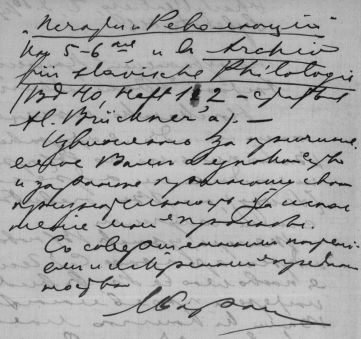 „Печать и Революция"
№ 5-6 и в Archiv
für slavische Philologie
(Bd 40, Heft 1 2 – статья
A. Brückner'a). —
Извиняюсь за причинен-
ное Вам беспокойство
и заранее приношу свою
признательность за испол-
нение моей просьбы.
Со совершенным почтени-
ем и искренней предан-
ностью